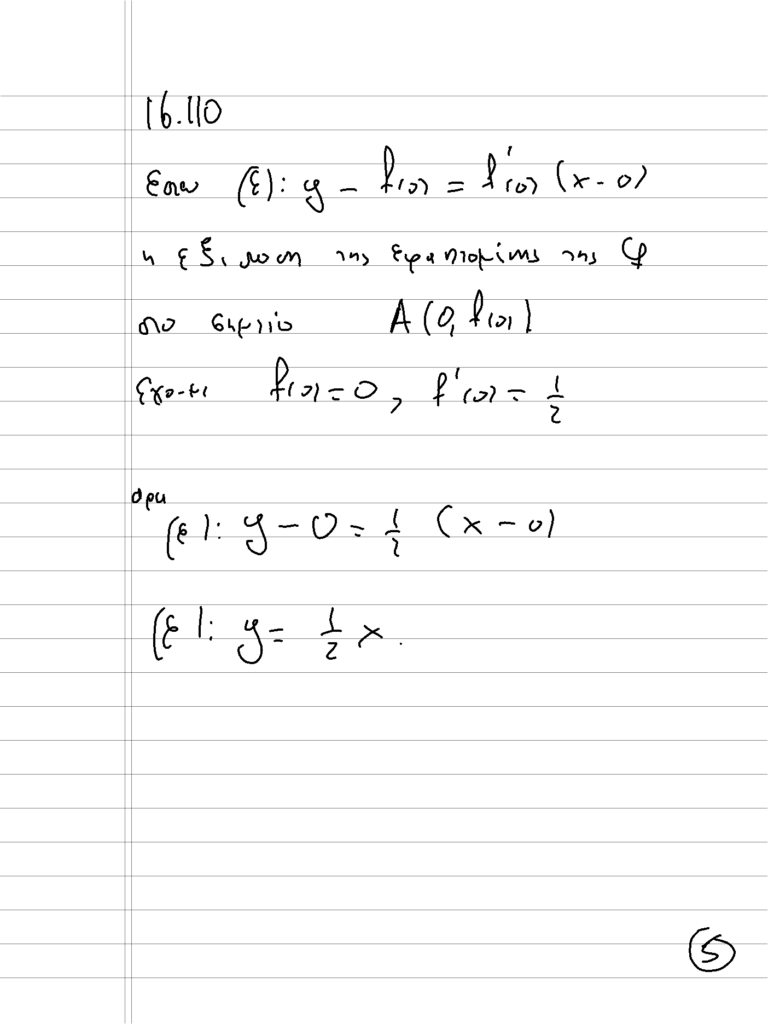 16.110
Έστω (ε): y - f(0) = f'(0) (x - 0)
η εξίσωση της εφαπτομένης της Cf
στο σημείο A(0, f(0))
Έχουμε f(0) = 0, f'(0) = 1/2
άρα
(ε): y - 0 = 1/2 (x - 0)
(ε): y = 1/2 x.
5